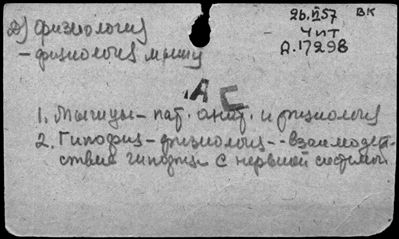 26.VI 57 ВК
Чит
А.17298
2) физиология
- физиология мышц
АС
1. Мышцы - пат. анат. и физиология
2. Гипофиз - физиология - взаимодей-
ствие гипофиз с нервной системой